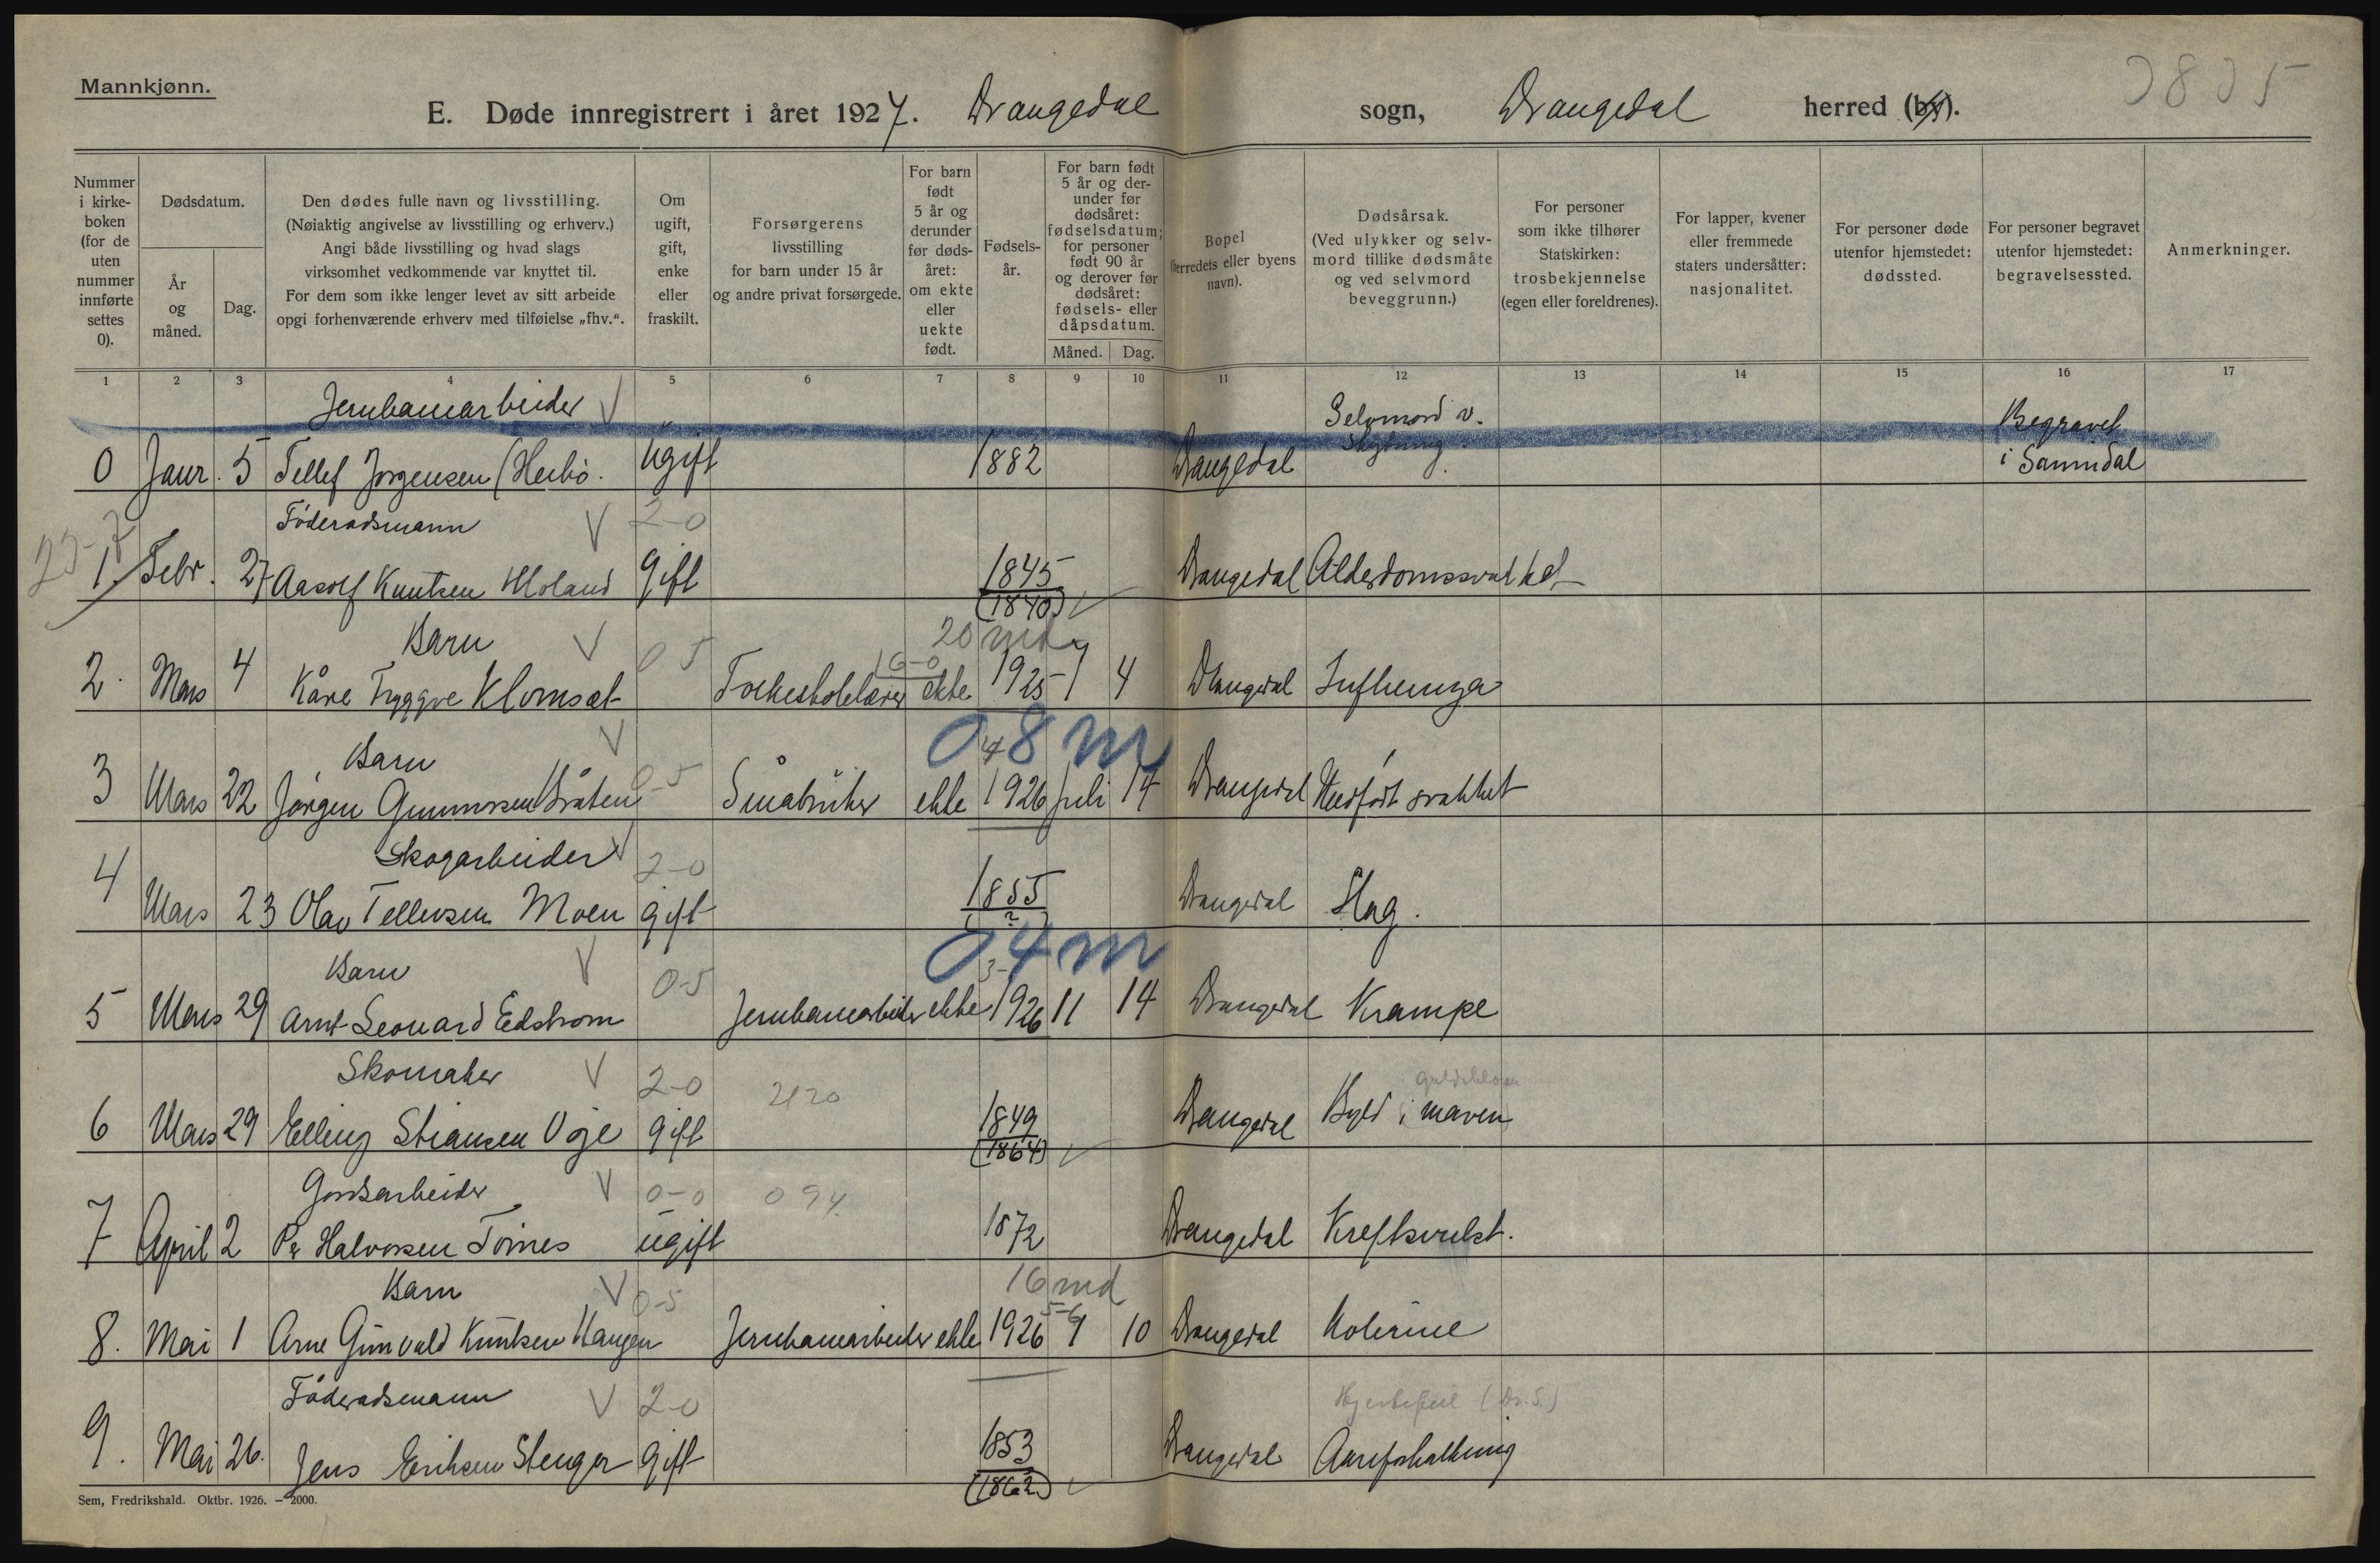 Mannkjønn.
E. Døde innregistrert i året 1927. Drangedal sogn, Drangedal herred (by).
Nummer i kirkeboken (for de uten nummer innførte settes 0).
Dødsdatum.
År og måned.
Dag.
Den dødes fulle navn og livsstilling.
(Nøiaktig angivelse av livsstilling og erhverv.)
Angi både livsstilling og hvad slags
virksomhet vedkommende var knyttet til.
For dem som ikke lenger levet av sitt arbeide
opgi forhenværende erhverv med tilføielse „fhv.“.
Om ugift, gift, enke eller fraskilt.
Forsørgerens
livsstilling
for barn under 15 år
og andre privat forsørgede.
For barn født 5 år og derunder før dødsåret: om ekte eller uekte født.
Fødselsår.
For barn født 5 år og derunder før dødsåret: fødselsdatum; for personer født 90 år og derover før dødsåret: fødsels- eller dåpsdatum.
Måned. Dag.
Bopel
(herredets eller byens
navn).
Dødsårsak.
(Ved ulykker og selvmord tillike dødsmåte
og ved selvmord
beveggrunn.)
For personer
som ikke tilhører
Statskirken:
trosbekjennelse
(egen eller foreldrenes).
For lapper, kvener
eller fremmede
staters undersåtter:
nasjonalitet.
For personer døde
utenfor hjemstedet:
dødssted.
For personer begravet
utenfor hjemstedet:
begravelsessted.
Anmerkninger.
1 2 3 4 5 6 7 8 9 10 11 12 13 14 15 16 17
Jernbanearbeider V Selvmord v. Begravet
0 Janr. 5 Tellef Jørgensen Ugift 1882 Drangedal Skytning. i Sannidal
Föderadsmann V 2-0
1. Febr. 27 Aasolf Knutsen Moland gift 1845 Drangedal Alderdomssvakhet
(1840)
Barn V 0 5 20 md
2. Mars 4 Kåre Tryggve Klomset ekte 1925 7 4 Drangedal Influenza
Barn V 0-5 0 8 m
3 Mars 22 Jörgen Gunnarsen Bråten Småbruker ekte 1926 juli 14 Drangedal Medfödt svakhet
Skogarbeider V 2-0
4 Mars 23 Olav Tellevsen Moen gift 1855 Drangedal Slag.
(?)
Barn V 0-5 0 4 m
5 Mars 29 Arnt Leonard Edstrøm Jernbanearbeider ekte 1926 11 14 Drangedal Krampe
Skomaker V 2-0
6 Mars 29 Elling Stiansen Voje gift 1849 Drangedal Byld i maven
(1864)
Gardsarbeider V 0-0 094
7 April 2 Per Halvorsen Tornes ugift 1872 Drangedal Kreftsvulst.
Barn V 0-5 16 md
8. Mai 1 Arne Gunvald Knutsen Haugen Jernbanearbeider ekte 1926 1 10 Drangedal Kolerine
Föderadsmann V 2-0 Hjertefeil (Dr. S.)
9. Mai 26. Jens Eriksen Stenger gift 1853 Drangedal Aareforkalkning
(1862)
Sem, Fredrikshald. Oktbr. 1926. – 2000.